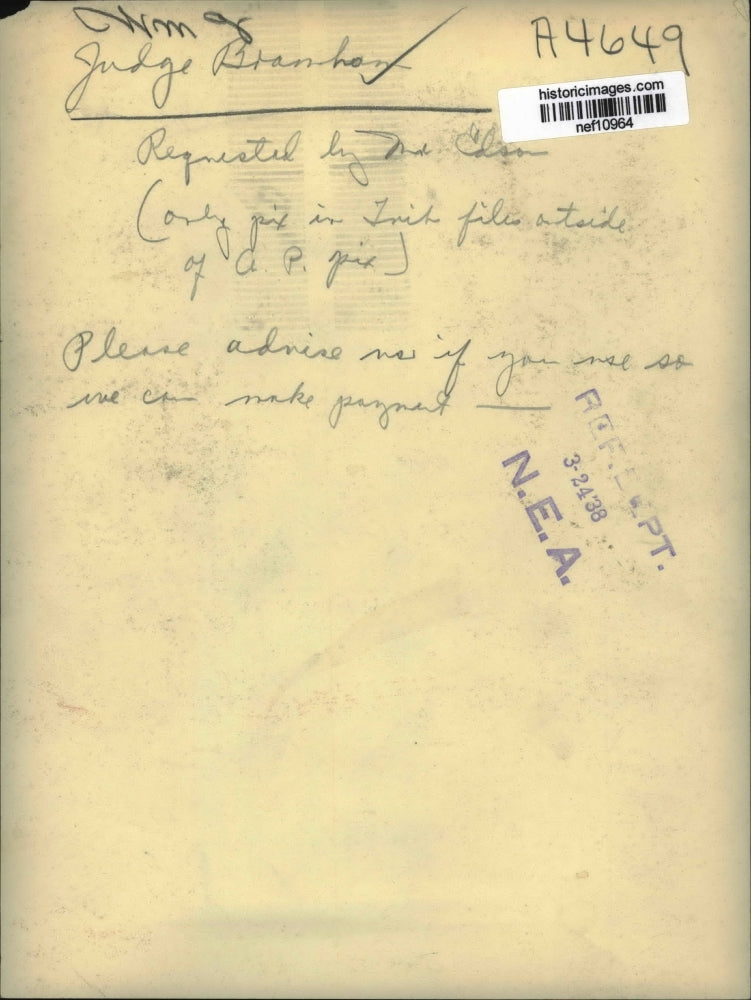 Wm G
Judge Bramham
A4649
historicimages.com
nef10964
Requested by Mr Edson
(only pix in Trib files outside
of A. P. pix)
Please advise us if you use so
we can make payment —
REF. DEPT.
3-24-38
N.E.A.